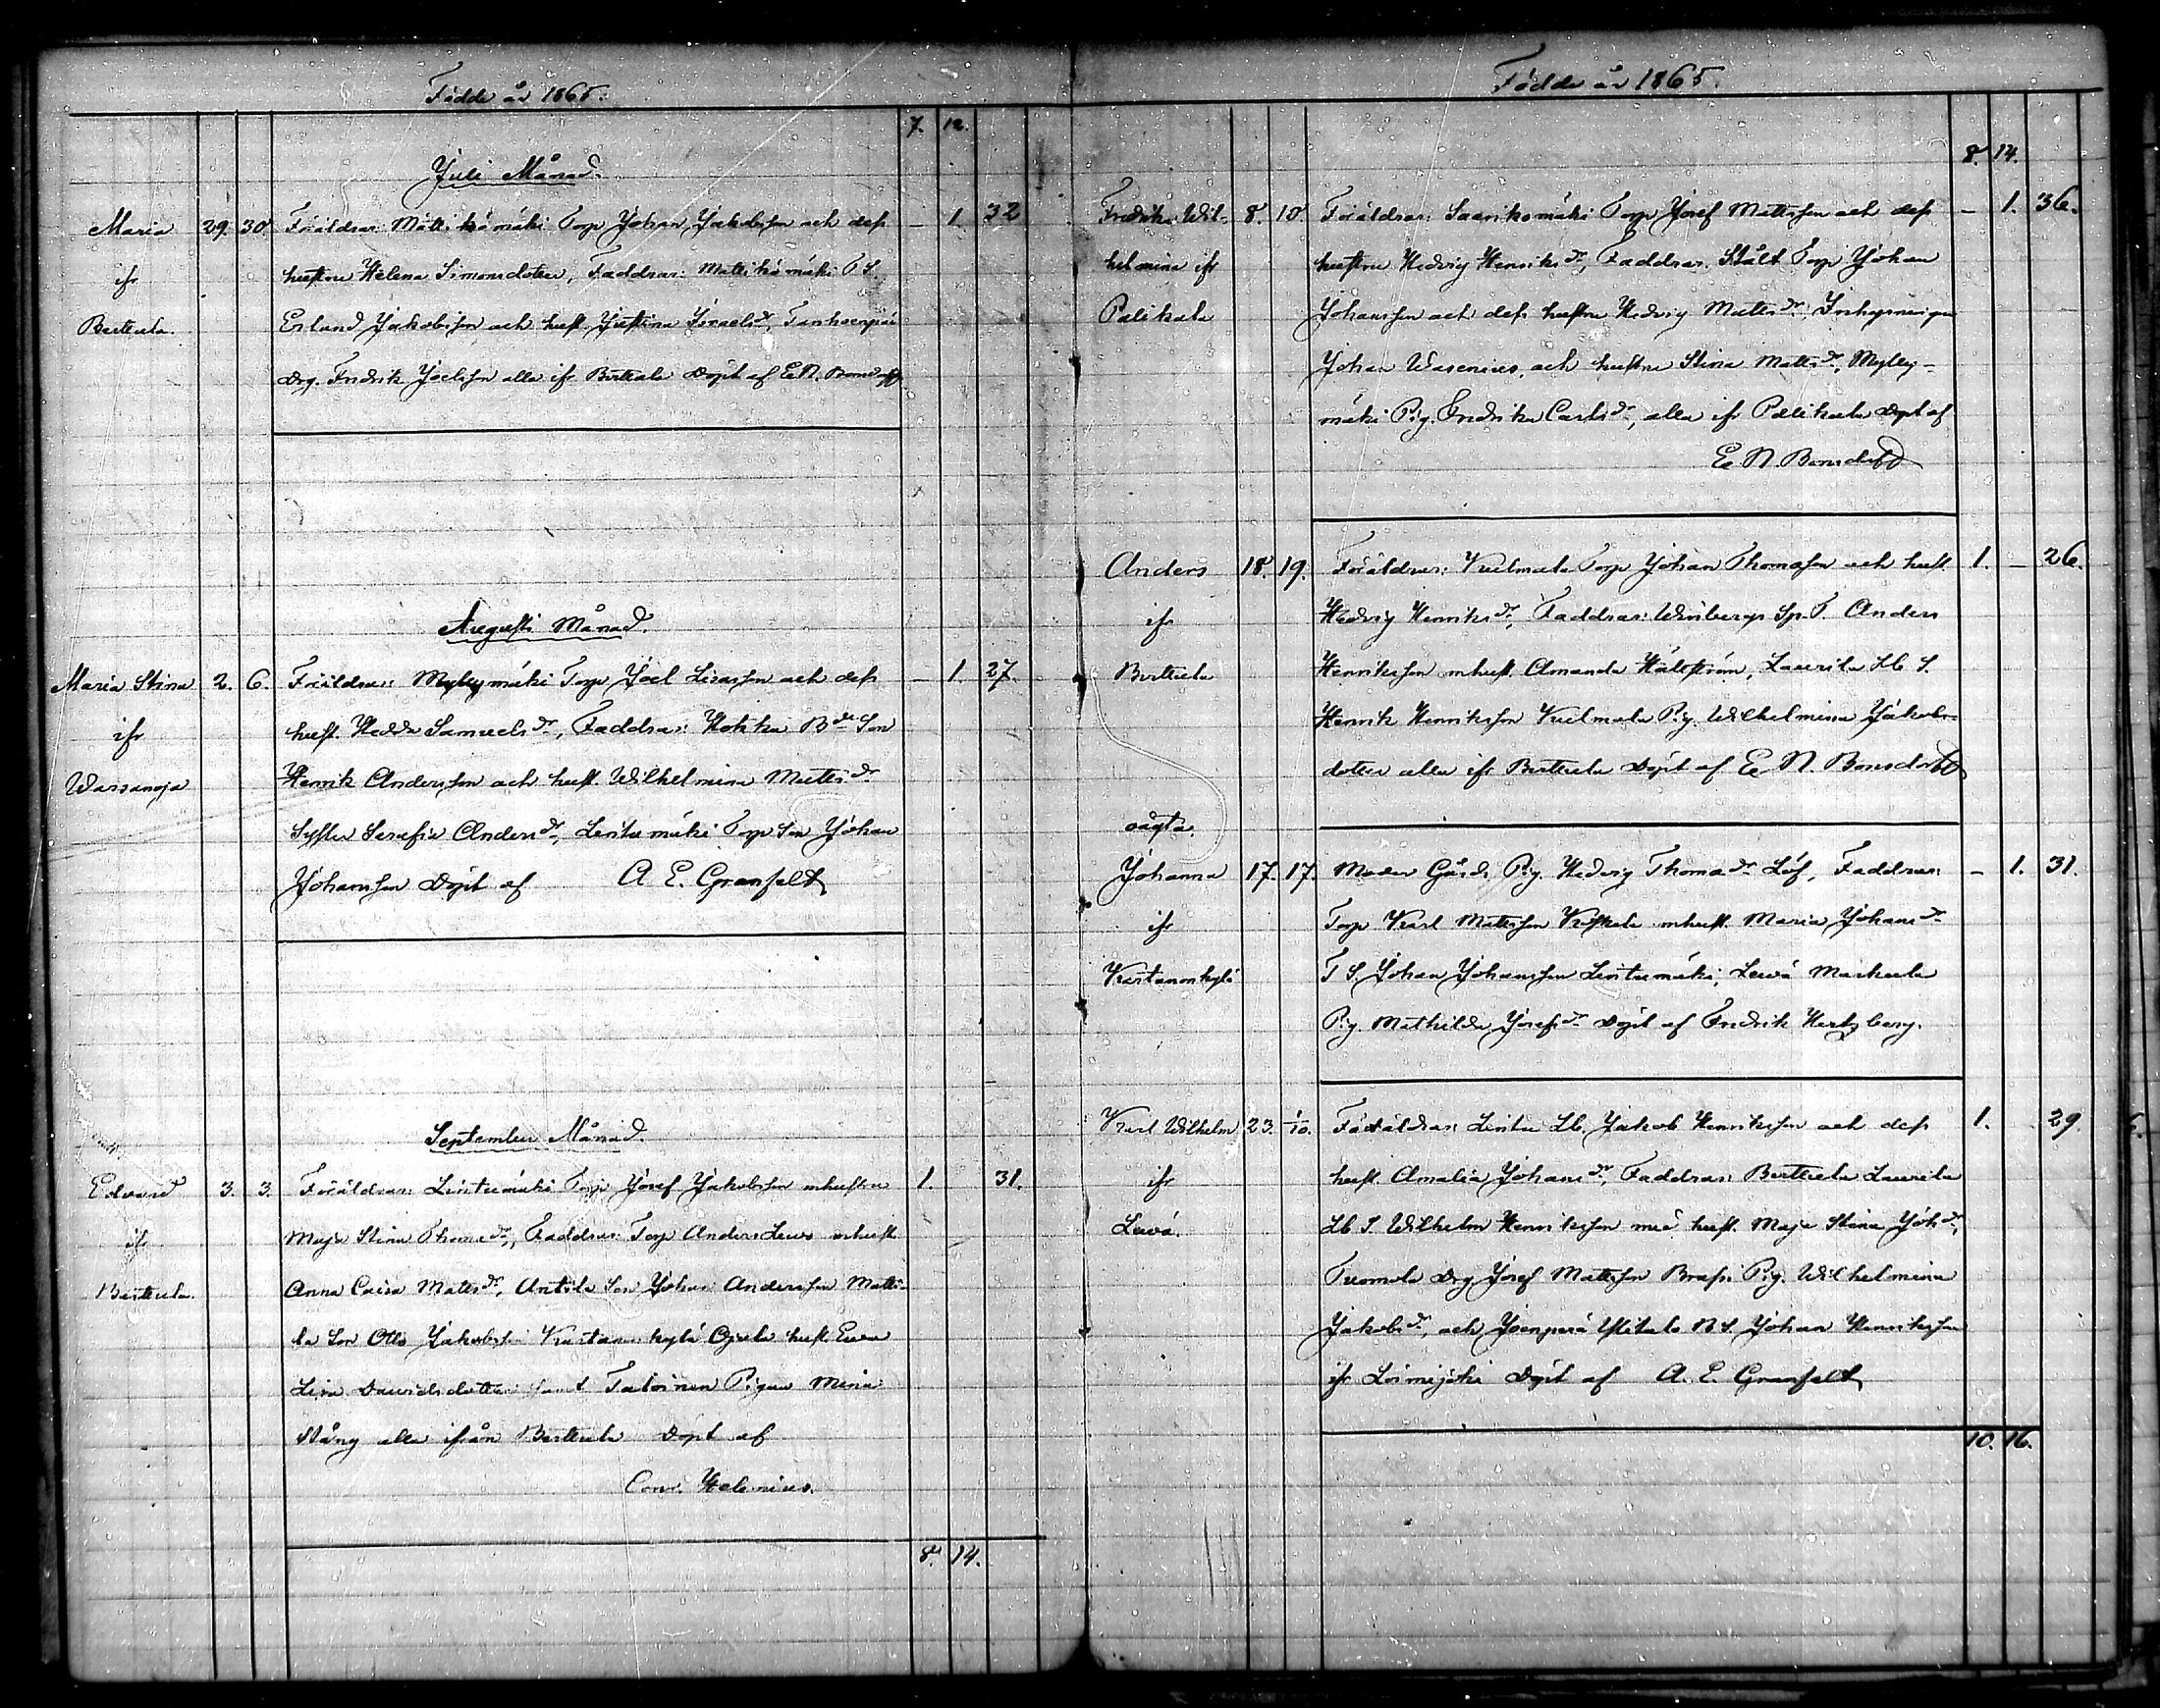 Födde år 1865.
7. 12.
Juli Månad.
Maria 29. 30. Föräldrar: Mattikömäki Torp Johan Jakobsson och dess — 1. 32
ifr hustru Helena Simonsdotter, Faddrar: Mattikömäki T S.
Berttula. Erland Jakobsson och hust. Justina Israelsdr, Tanhuanpää
Drg. Fredrik Joelsson alla ifr Berttula Döpt af E. N. Bonsdorff
Augusti Månad.
Maria Stina 2. 6. Föräldrar: Myllymäki Torp Joel Lisasson och dess — 1. 27.
ifr hust. Hedda Samuelsdr, Faddrar: Hokka Bde Son
Warsanoja Henrik Andersson och hust. Wilhelmina Mattsdr
Syster Serafia Andersdr, Lintumäki Torp Son Johan
Johansson Döpt af A. E. Granfelt
September Månad.
Edvard 3. 3. Föräldrar: Lintumäki Torp Josef Jakobsson mhustru 1. 31.
ifr Maja Stina Thomasdr, Faddrar: Torp Anders Leus mhust
Berttula. Anna Caisa Mattsdr, Anttila Son Johan Andersson Matti-
la Son Otto Jakobsson Kartanonkylä Ojala hust. Eva
Lisa Davidsdotter samt Taloinen Pigan Mina
Stång alla ifrån Berttula Döpt af
Conr. Helenius.
8. 14.
Födde år 1865.
8. 14.
Fredrika Wil- 8. 10. Föräldrar: Saarikomäki Torp Josef Mattsson och dess — 1. 36.
helmina ifr hustru Hedvig Henriksdr, Faddrar: Stålt Torp Johan
Palikala Johansson och dess hustru Hedvig Mattsdr, Inhysningen
Johan Wasenius, och hustru Stina Mattsdr, Mylly-
mäki Pig. Fredrika Carlsdr, alla ifr Palikala Döpt af
E. N. Bonsdorff
Anders 18. 19. Föräldrar: Kuilmala Torp Johan Thomasson och hust. 1. — 26.
ifr Hedvig Henriksdr, Faddrar: Winbergs Sp. T. Anders
Berttula Henriksson mhust. Amanda Hälström, Laurila Lb S.
Henrik Henriksson Kuilmala Pig. Wilhelmina Jakobs-
dotter alla ifr Berttula Döpt af E. N. Bonsdorff
oägta.
Johanna 17. 17. Moder Gårds Pig. Hedvig Thomasdr Löf, Faddrar: — 1. 31.
ifr Torp Karl Mattsson Kiskala mhust. Maria Johansdr
Kartanonkylä T S. Johan Johansson Lintumäki, Levä Markula
Pig. Mathilda Josefsdr Döpt af Fredrik Hertzberg.
Karl Wilhelm 23. 1/10. Föräldrar: Lintu Lb. Jakob Henriksson och dess 1. 29.
ifr hust. Amalia Johansdr, Faddrar: Berttula Laurila
Levä. Lb S Wilhelm Henriksson med hust. Maja Stina Johdr,
Tuomola Drg Josef Mattsson Brasi Pig. Wilhelmina
Jakobsdr, och Joenperä Ylitalo N S. Johan Henriksson
ifr Loimijoki Döpt af A. E. Granfelt
10. 16.